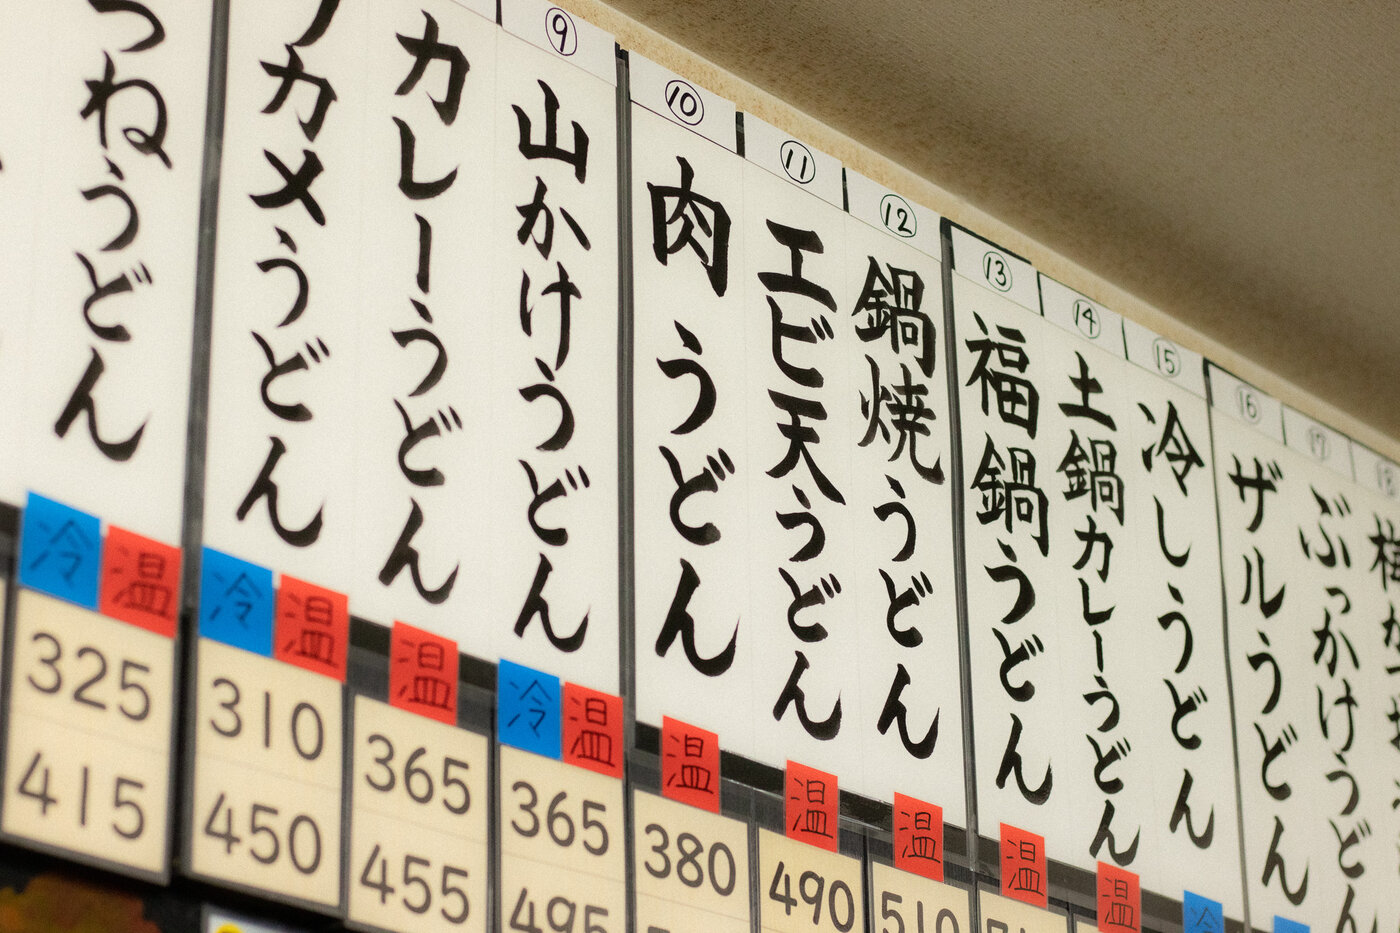 つねうどん
冷 温
325
415
カメうどん
冷 温
310
450
カレーうどん
温
365
455
⑨
山かけうどん
冷 温
365
495
⑩
肉うどん
温
380
⑪
エビ天うどん
温
490
⑫
鍋焼うどん
温
510
⑬
福鍋うどん
温
⑭
土鍋カレーうどん
温
⑮
冷しうどん
冷
⑯
ザルうどん
⑰
ぶっかけうどん